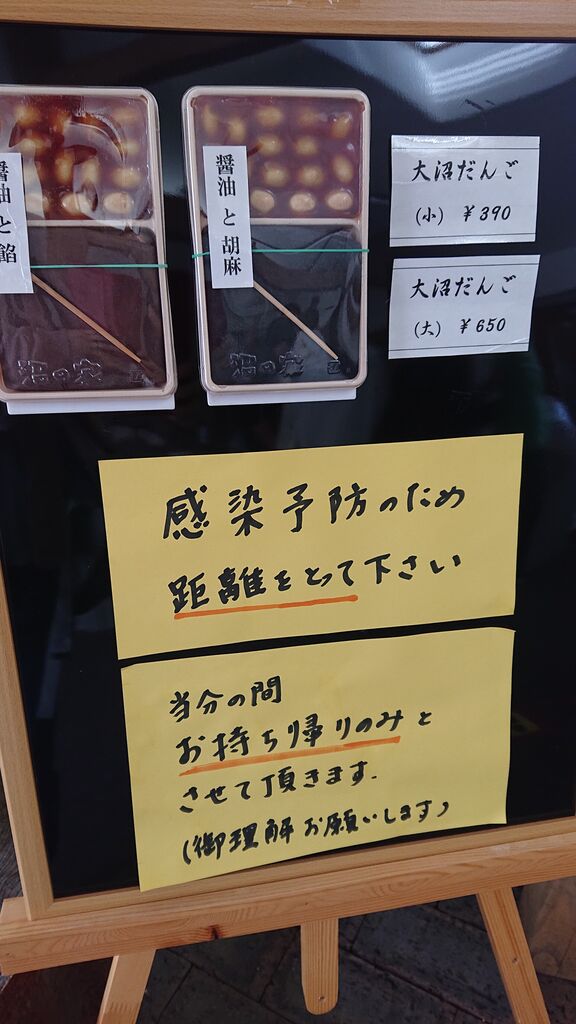 醤油と餡
醤油と胡麻
沼の家
沼の家
大沼だんご
(小) ¥390
大沼だんご
(大) ¥650
感染予防のため
距離をとって下さい
当分の間
お持ち帰りのみと
させて頂きます.
(御理解お願いします)